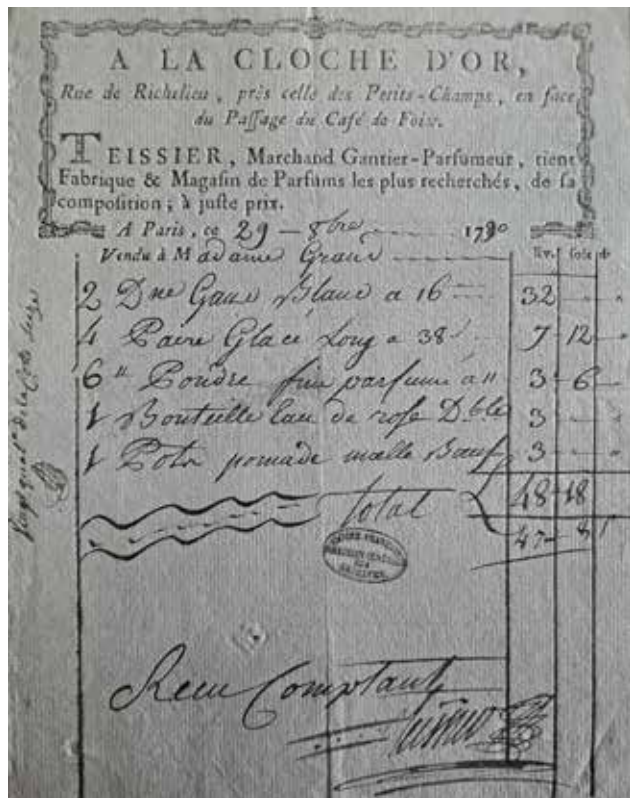 A LA CLOCHE D'OR,
Rue de Richelieu, près celle des Petits-Champs, en face
du Paſſage du Café de Foix.
TEISSIER, Marchand Gantier-Parfumeur, tient
Fabrique & Magaſin de Parfums les plus recherchés, de ſa
compoſition; à juſte prix.
A Paris, ce 29 - 8bre 1790
Vendu à Madame Grand liv. ſols d
2 Dne Gans Blanc a 16 32
4 Paire Glacé Long a 38 7 12
6 " Poudre fine parfumé a " 3 6
1 Bouteille Eau de rose Dble 3
1 Pots pomade moelle Bœuf 3
total 48 18
47 - 8
Reçu Comptant
Teissier